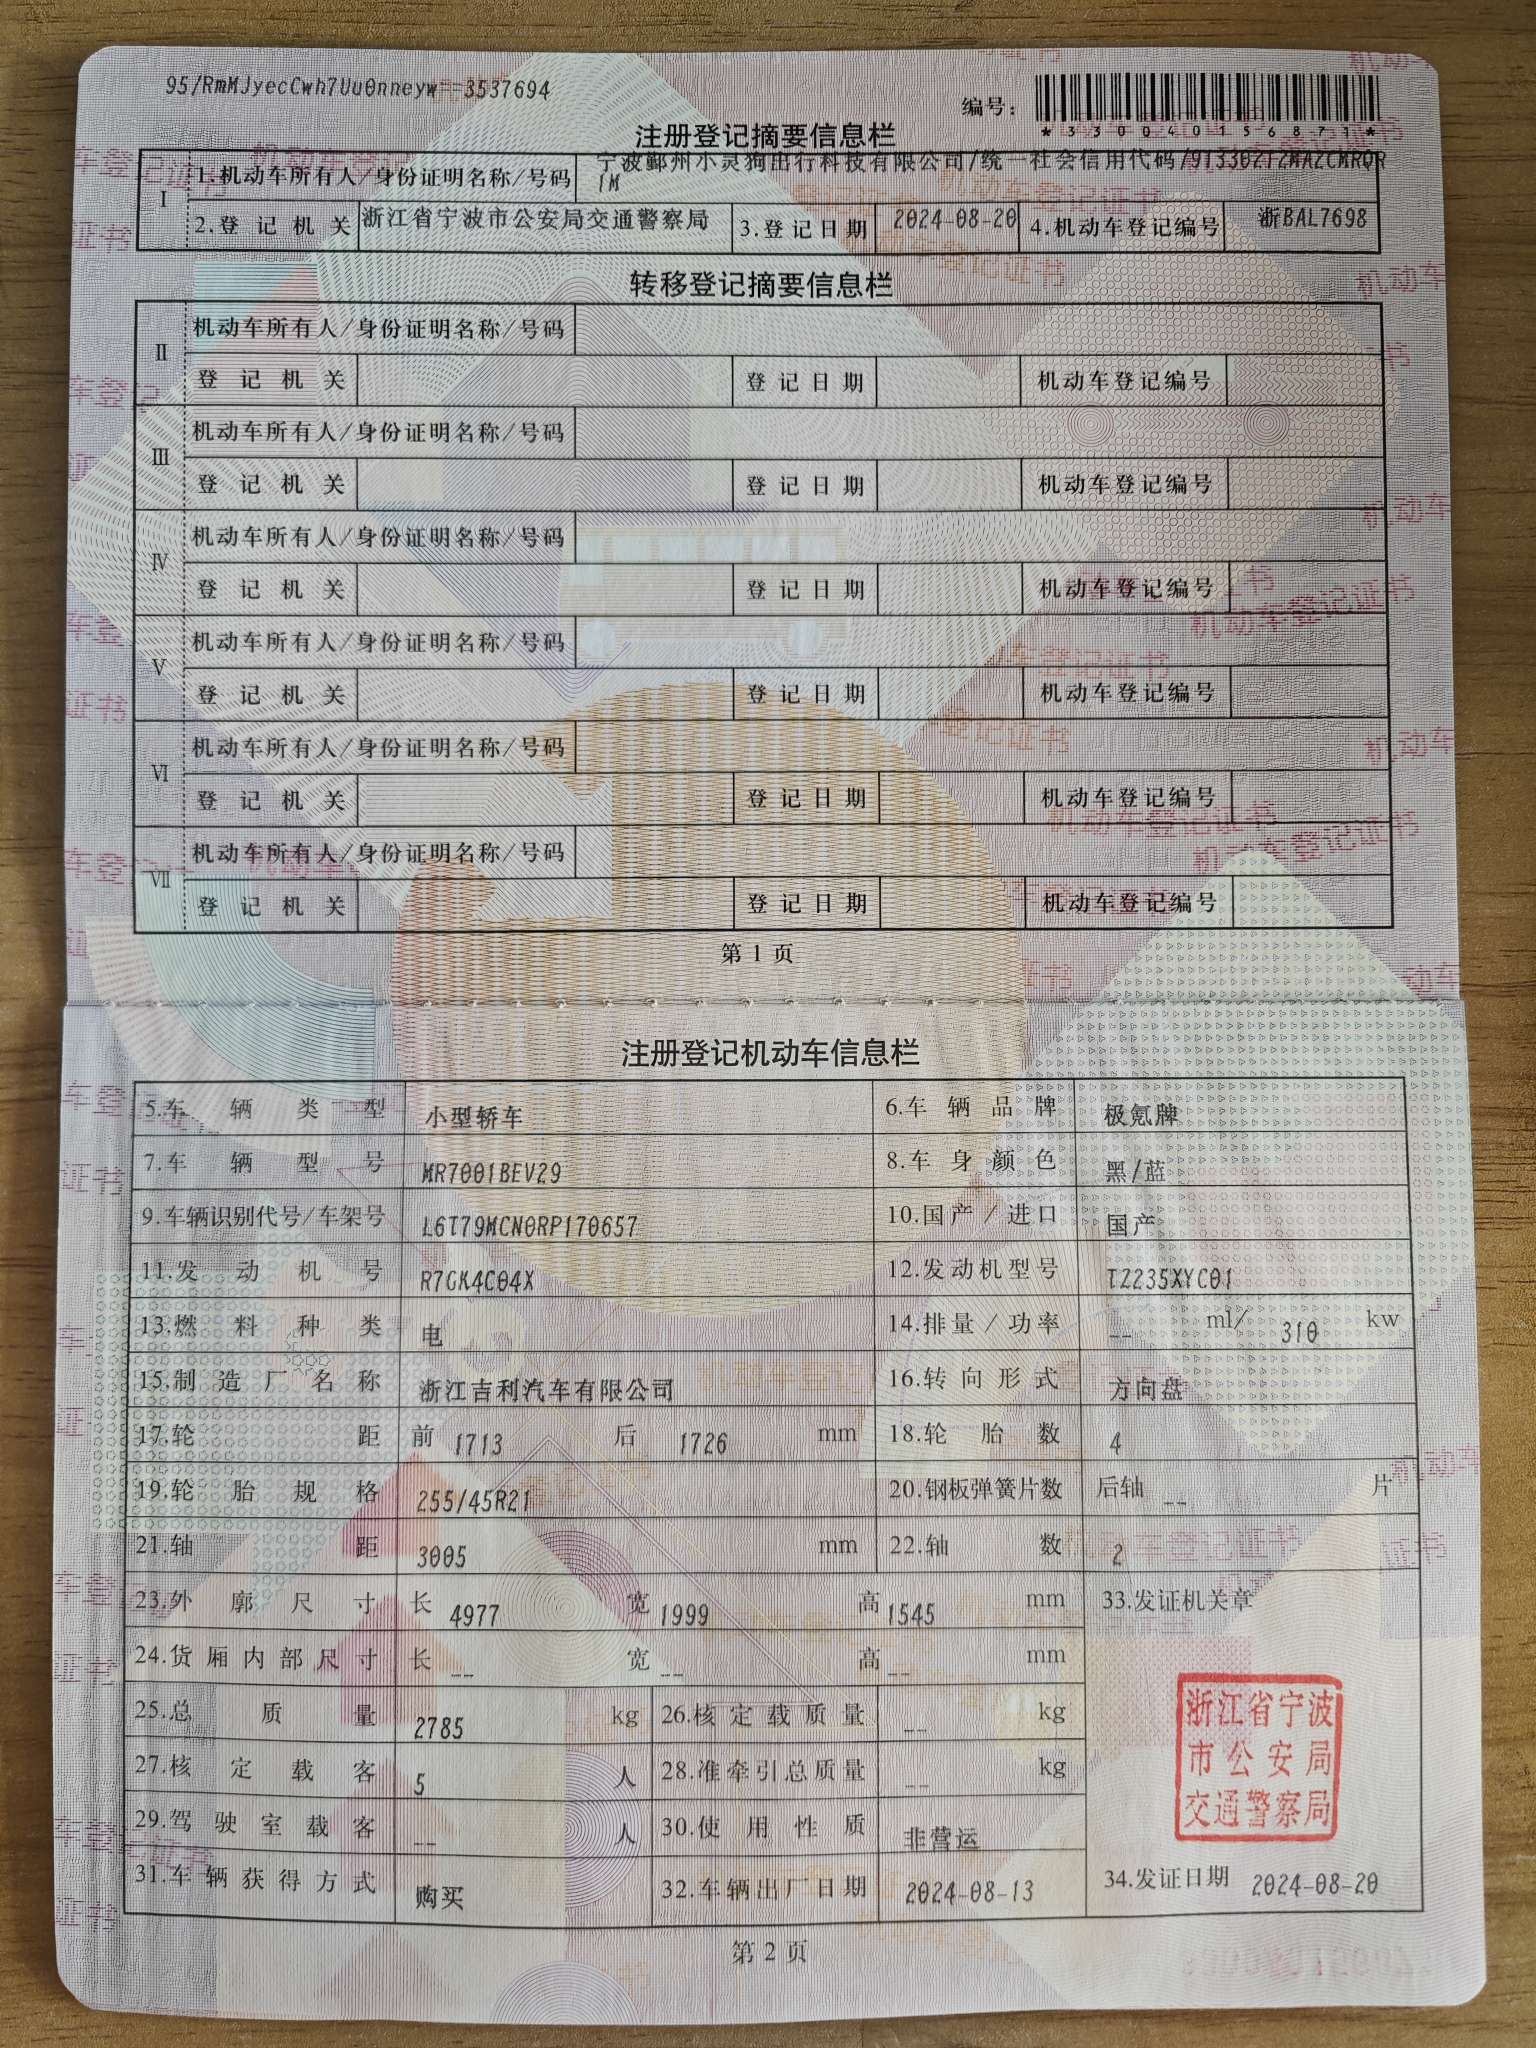 95/RmMJyecCwh7Uu0nneyw==3537694
编号：
*330040156871*
注册登记摘要信息栏
I 1.机动车所有人/身份证明名称/号码 宁波鄞州小灵狗出行科技有限公司/统一社会信用代码/91330212MA2CMRQR
1M
2.登记机关 浙江省宁波市公安局交通警察局 3.登记日期 2024-08-20 4.机动车登记编号 浙BAL7698
转移登记摘要信息栏
II 机动车所有人/身份证明名称/号码
登记机关 登记日期 机动车登记编号
III 机动车所有人/身份证明名称/号码
登记机关 登记日期 机动车登记编号
IV 机动车所有人/身份证明名称/号码
登记机关 登记日期 机动车登记编号
V 机动车所有人/身份证明名称/号码
登记机关 登记日期 机动车登记编号
VI 机动车所有人/身份证明名称/号码
登记机关 登记日期 机动车登记编号
VII 机动车所有人/身份证明名称/号码
登记机关 登记日期 机动车登记编号
第1页
注册登记机动车信息栏
5.车辆类型 小型轿车 6.车辆品牌 极氪牌
7.车辆型号 MR7001BEV29 8.车身颜色 黑/蓝
9.车辆识别代号/车架号 L6T79MCN0RP170657 10.国产/进口 国产
11.发动机号 R7GK4C04X 12.发动机型号 TZ235XYC01
13.燃料种类 电 14.排量/功率 -- ml/ 310 kw
15.制造厂名称 浙江吉利汽车有限公司 16.转向形式 方向盘
17.轮距 前 1713 后 1726 mm 18.轮胎数 4
19.轮胎规格 255/45R21 20.钢板弹簧片数 后轴 -- 片
21.轴距 3005 mm 22.轴数 2
23.外廓尺寸 长 4977 宽 1999 高 1545 mm 33.发证机关章
24.货厢内部尺寸 长 -- 宽 -- 高 -- mm
25.总质量 2785 kg 26.核定载质量 -- kg
浙江省宁波
市公安局
交通警察局
27.核定载客 5 人 28.准牵引总质量 -- kg
29.驾驶室载客 -- 人 30.使用性质 非营运
31.车辆获得方式 购买 32.车辆出厂日期 2024-08-13 34.发证日期 2024-08-20
第2页